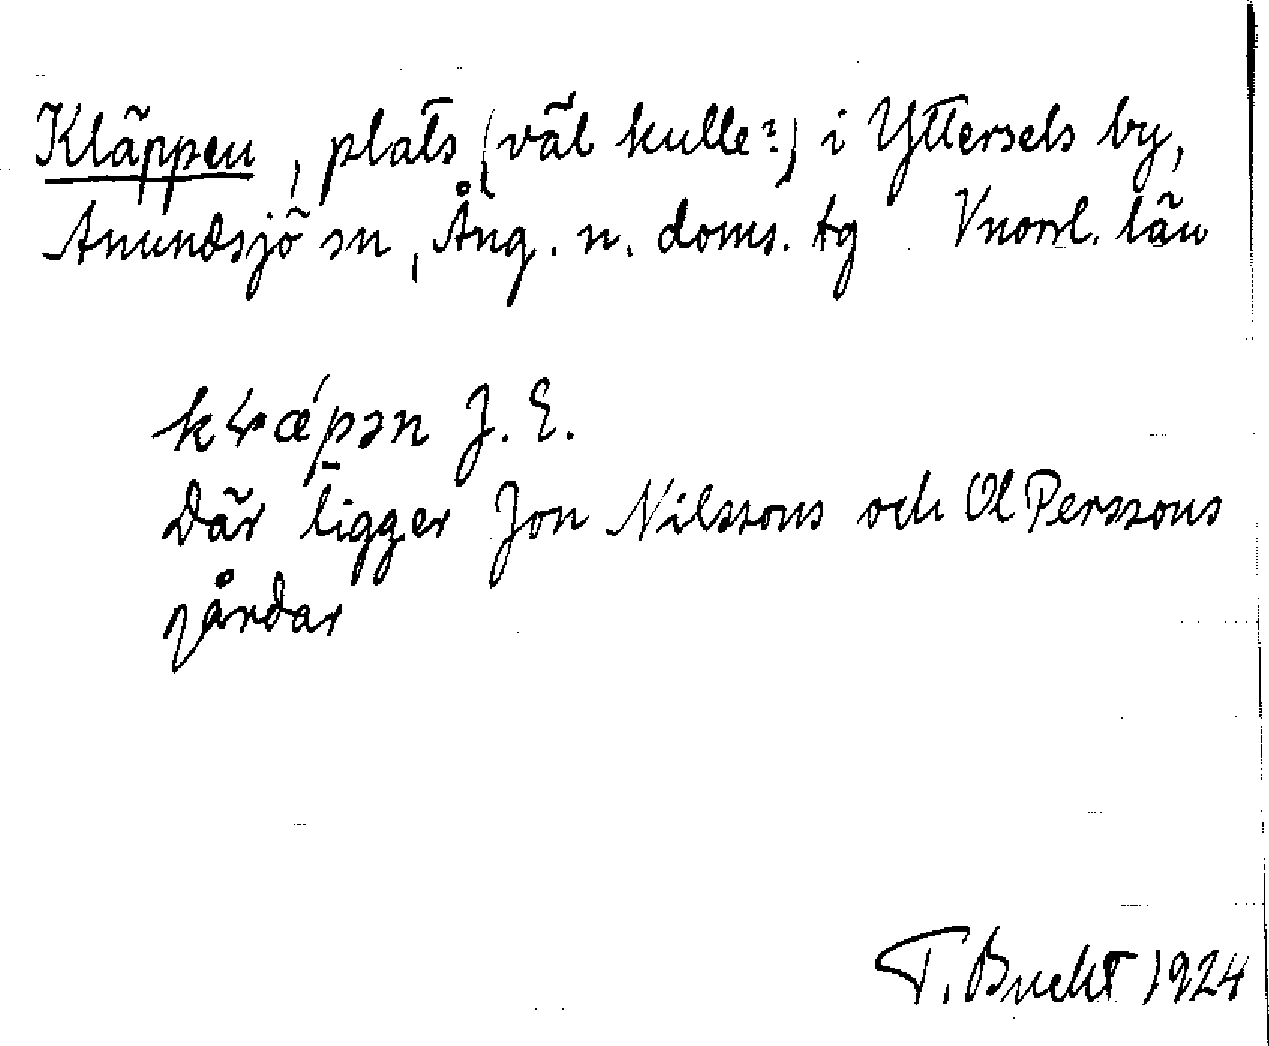 Kläppen, plats (väl kulle?) i Yttersels by,
Anundsjö sn, Ång. n. doms. tg Vnorrl. län
J. E.
Där ligger Jon Nilssons och Ol Perssons
gårdar
T. Bucht 1924